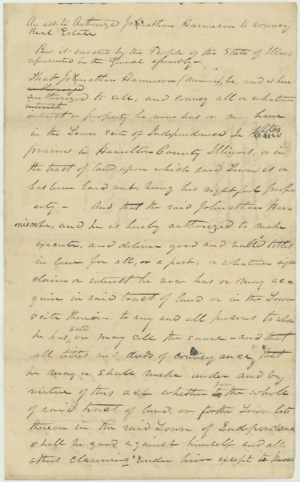 An act to Authorize Johnathan Harrison to convey
Real Estate
Be it enacted by the People of the State of Illinois
represented in the General assembly—
That Johnathan Harrison (minor) be, and is here
authorized to sell, and convey all or whatever
interest or property he now has or may have
in the Town Scite of Independence In
prairie in Hamilton County Illinois, or in
the tract of land upon which said Town is or
has been laid out being his rightful prop
erty— And the said Johnathan Har
rison be, and he is hereby authorized to make
execute, and deliver good and valid titles
in law for all, or a part, or whatever right
claim or interest he now has or may ac
quire in said tract of land or in the Town
scite therein to any and all persons to whom
he has, sold or may sell the same— and
all titles and deeds of conveyance
he may or shall make under and by
virtue of this act whether for the whole
of said tract of land, or for the Town lots
therein in the said Town of Independence
shall be good against himself and all
others claiming under him except